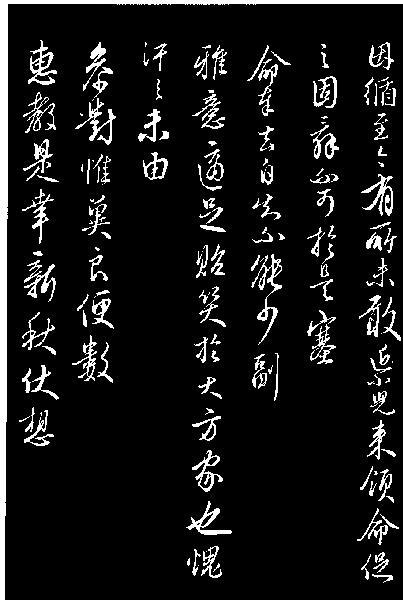 因循至今有所未敢近來領命促
之固辭不可於是塞
命奉去自知不能少副
雅意適足貽笑於大方家也愧
汗々未由
參對惟冀良便數
惠教是幸新秋伏想